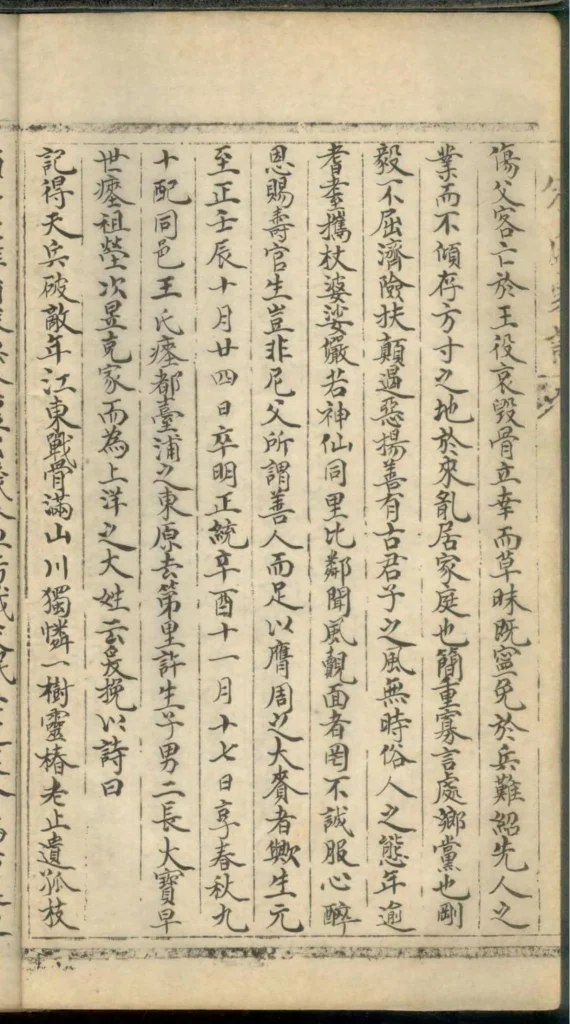 傷父客亡於王役哀毀骨立幸而草昧既寧免於兵難紹先人之
業而不傾存方寸之地於來胤居家庭也簡重寡言處鄉黨也剛
毅不屈濟險扶顛遏惡揚善有古君子之風無時俗人之態年逾
耆耋攜杖婆娑儼若神仙同里比鄰聞風覿面者罔不誠服心醉
恩賜壽官生豈非尼父所謂善人而足以膺周之大賚者歟生元
至正壬辰十月廿四日卒明正統辛酉十一月十七日享春秋九
十配同邑王氏瘞都臺浦之東原去第里許生子男二長大寶早
世瘞祖塋次昱克家而為上洋之大姓云爰挽以詩曰
記得天兵破敵年江東戰骨滿山川獨憐一樹靈椿老止遺孤枝